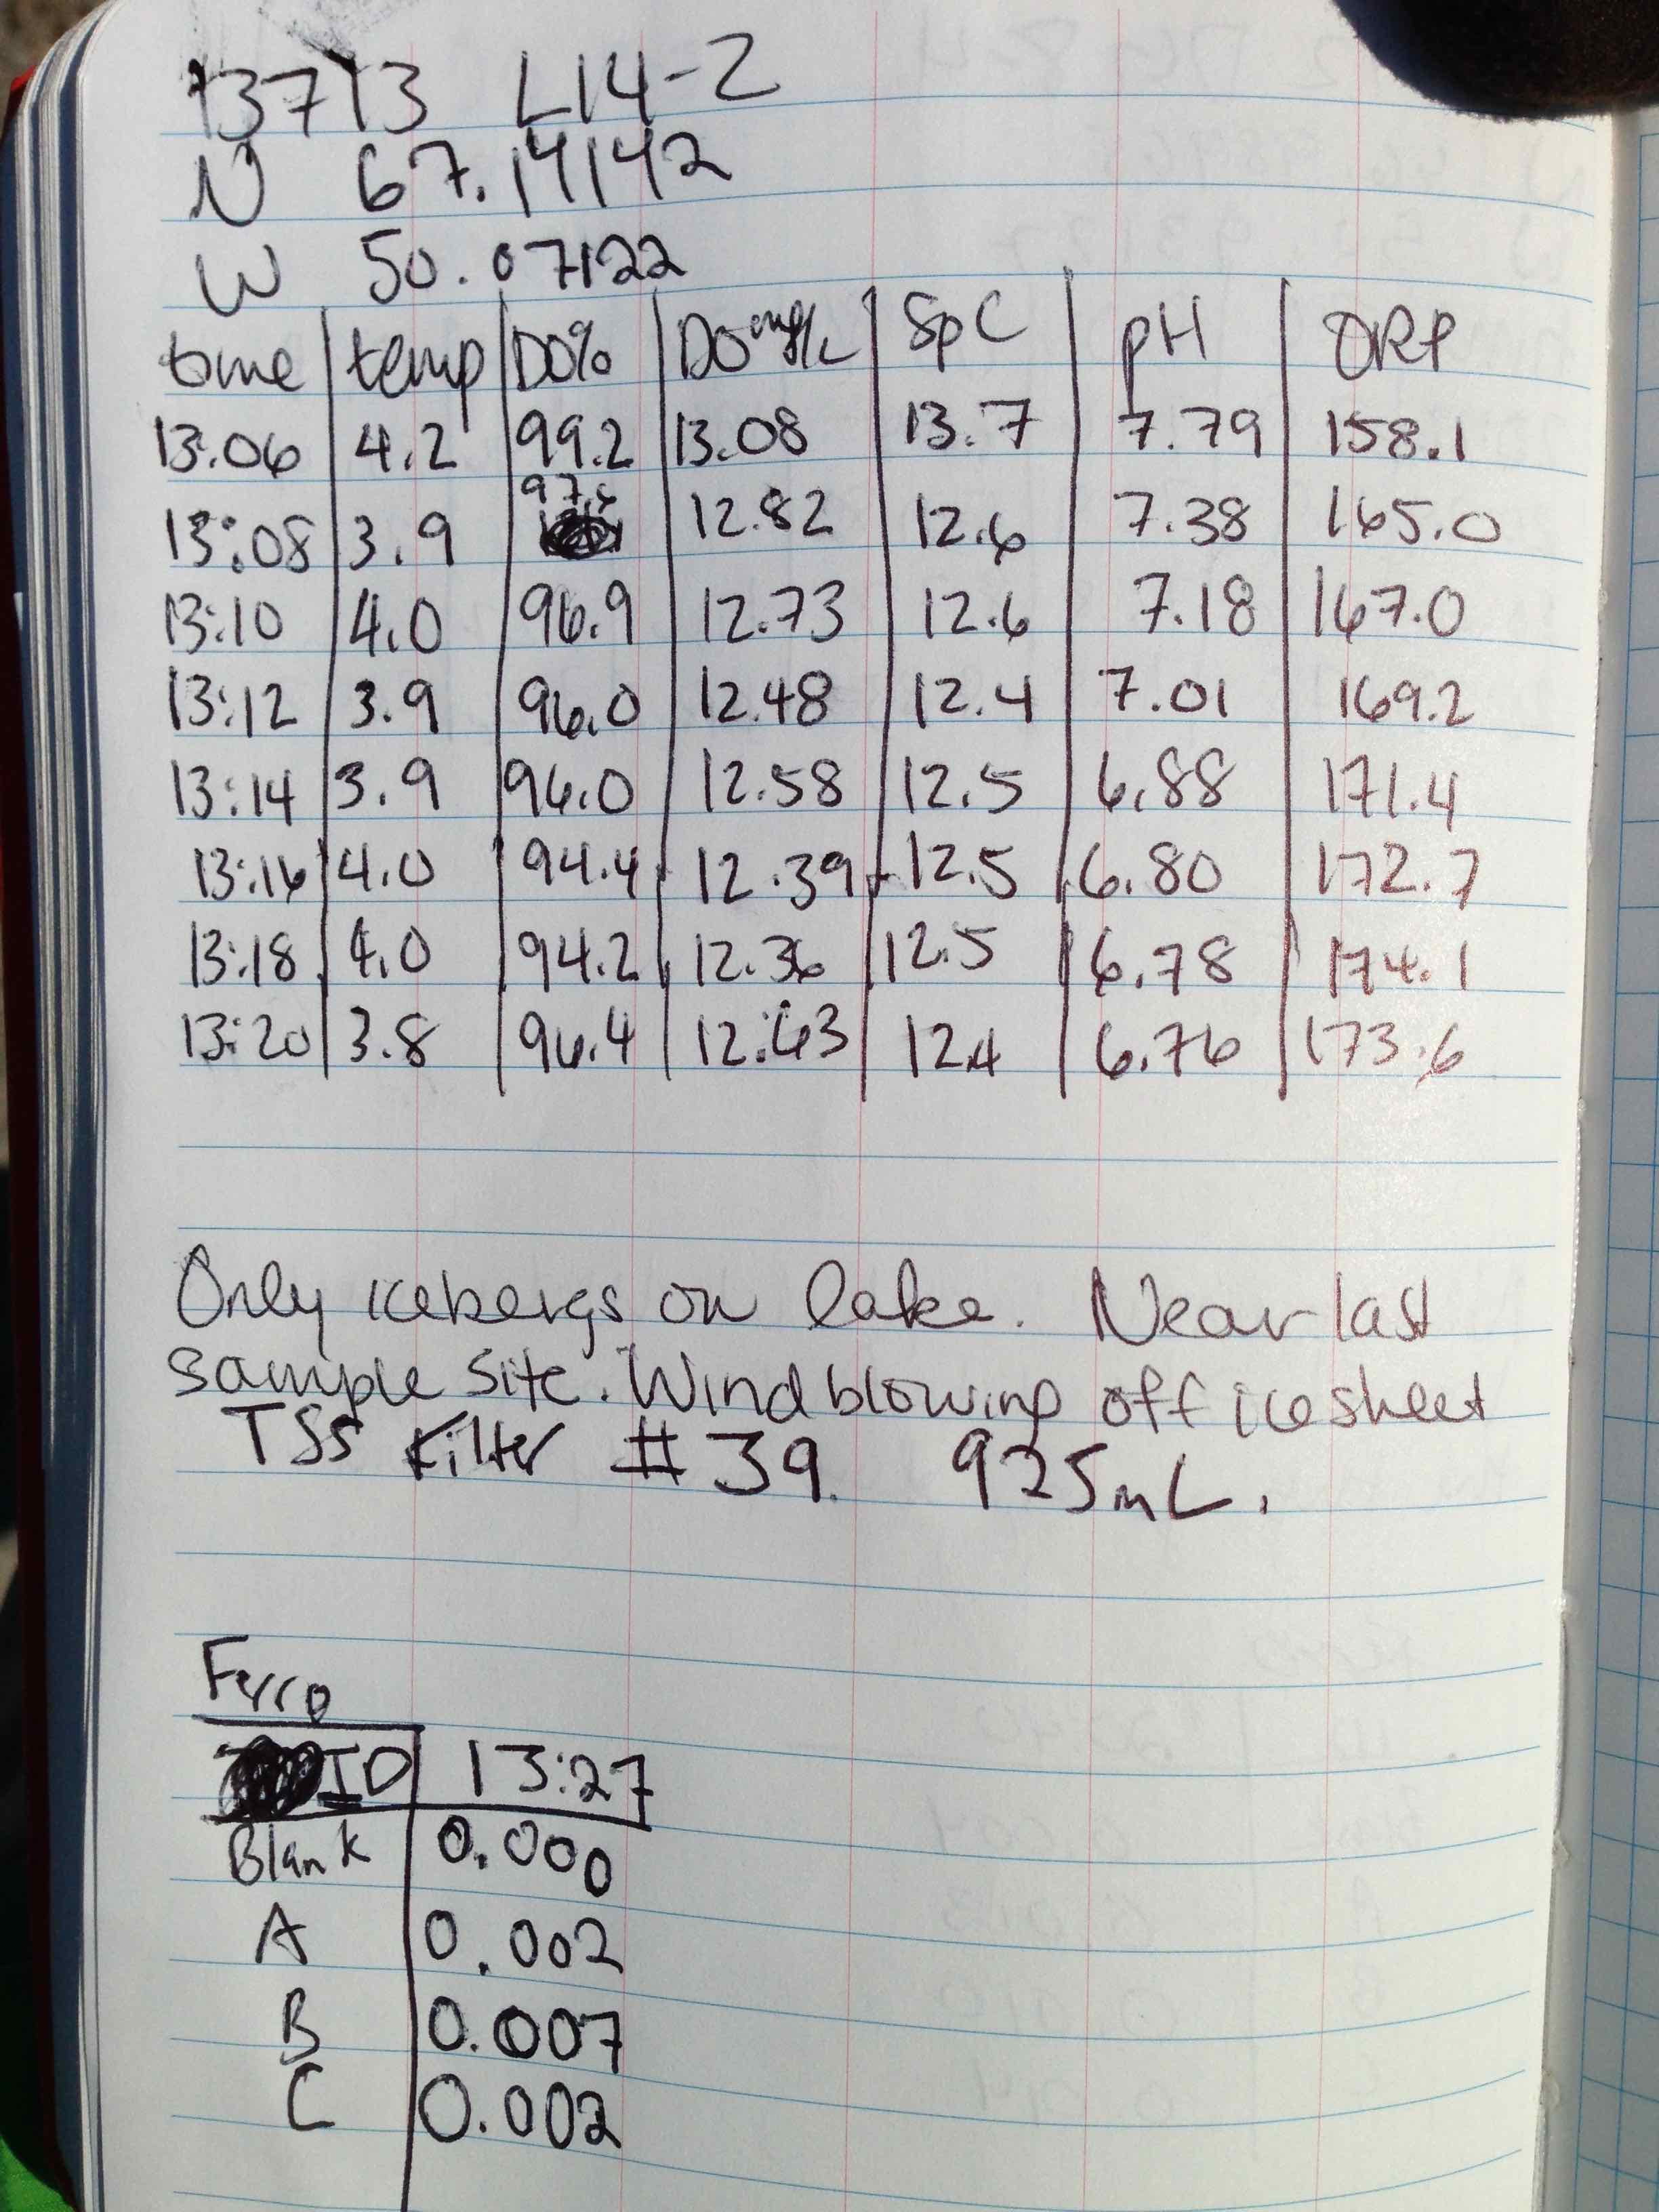 13713 L14-2
N 67.14142
W 50.07122
time temp DO% DO mg/L SpC pH ORP
13:06 4.2 99.2 13.08 13.7 7.79 158.1
13:08 3.9 97.6 12.82 12.6 7.38 165.0
13:10 4.0 96.9 12.73 12.6 7.18 167.0
13:12 3.9 96.0 12.48 12.4 7.01 169.2
13:14 3.9 96.0 12.58 12.5 6.88 171.4
13:16 4.0 94.4 12.39 12.5 6.80 172.7
13:18 4.0 94.2 12.36 12.5 6.78 174.1
13:20 3.8 96.4 12.63 12.4 6.76 173.6
Only icebergs on lake. Near last
sample site. Wind blowing off ice sheet
TSS Filter #39. 925mL.
Ferro
ID 13:27
Blank 0.000
A 0.002
B 0.007
C 0.002